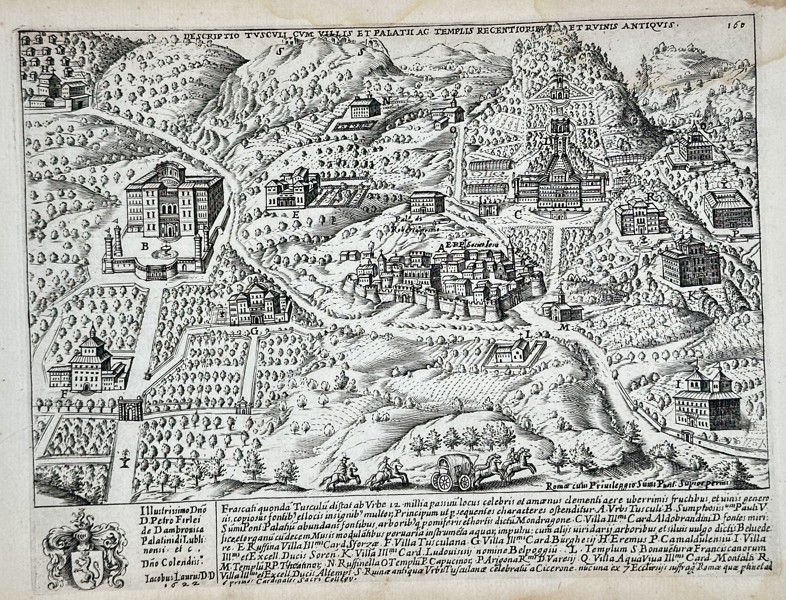 DESCRIPTIO TVSCVLI CVM VILLIS ET PALATII AC TEMPLIS RECENTIORIBVS ET RVINIS ANTIQVIS.
160
S S
B
E
C
A
G
F
M
L
I
P
Romæ cum Privilegio Sumi Pont. Superiorum
Illustrissimo Dño
D. Petro Firlei
de Dambrovica
Palatinidi Lubli
nensis etc.
Dño Colendiss.
Iacobus Laurus D.D
1622
Frascati quondã Tusculũ distat ab Vrbe 12 millia passuũ locus celebris et amænus clementi aere uberrimis fructibus, et vinis genero
sis, copiosis fontib et locis insignib multis; Principum ut p sequentes characteres ostenditur. A. Vrbs Tusculi. B. Sumptuosiss um Pauli V
Sum Pont Palatiũ abundans fontibus arborib pomiferis et hortis dictũ Mondragone. C. Villa Ill mi Card. Aldobrandini D. fontes miri:
musis modulatibus aquæ impulsu cum alijs viridarij arboribus et siluis vulgo dictis Beluede
re. E. Ruffina Villa Ill mi Card. Sforzæ F. Villa Tusculana G. Villa Ill mi Card. Burghesij H. Eremus P. Camaldulensiũ I. Villa
Ill mi et Excell. Ducis Soræ. K. Villa Ill mi Card. Ludouisij nomine Belpoggio L. Templum S. Bonauenturæ Franciscanorum
M. Templũ RP. Theatinor, N. Ruffinella O. Templũ P. Capucinor, P. Arigona R mi D. Varesij Q. Villa Aqua Viua Ill mi Card. Montalti R.
Villa Ill mi et Excell. Ducis Altemps S. Ruinæ antiquæ Vrbis Tusculanæ celebratæ a Cicerone
Cardinalis Sacri Collegij.